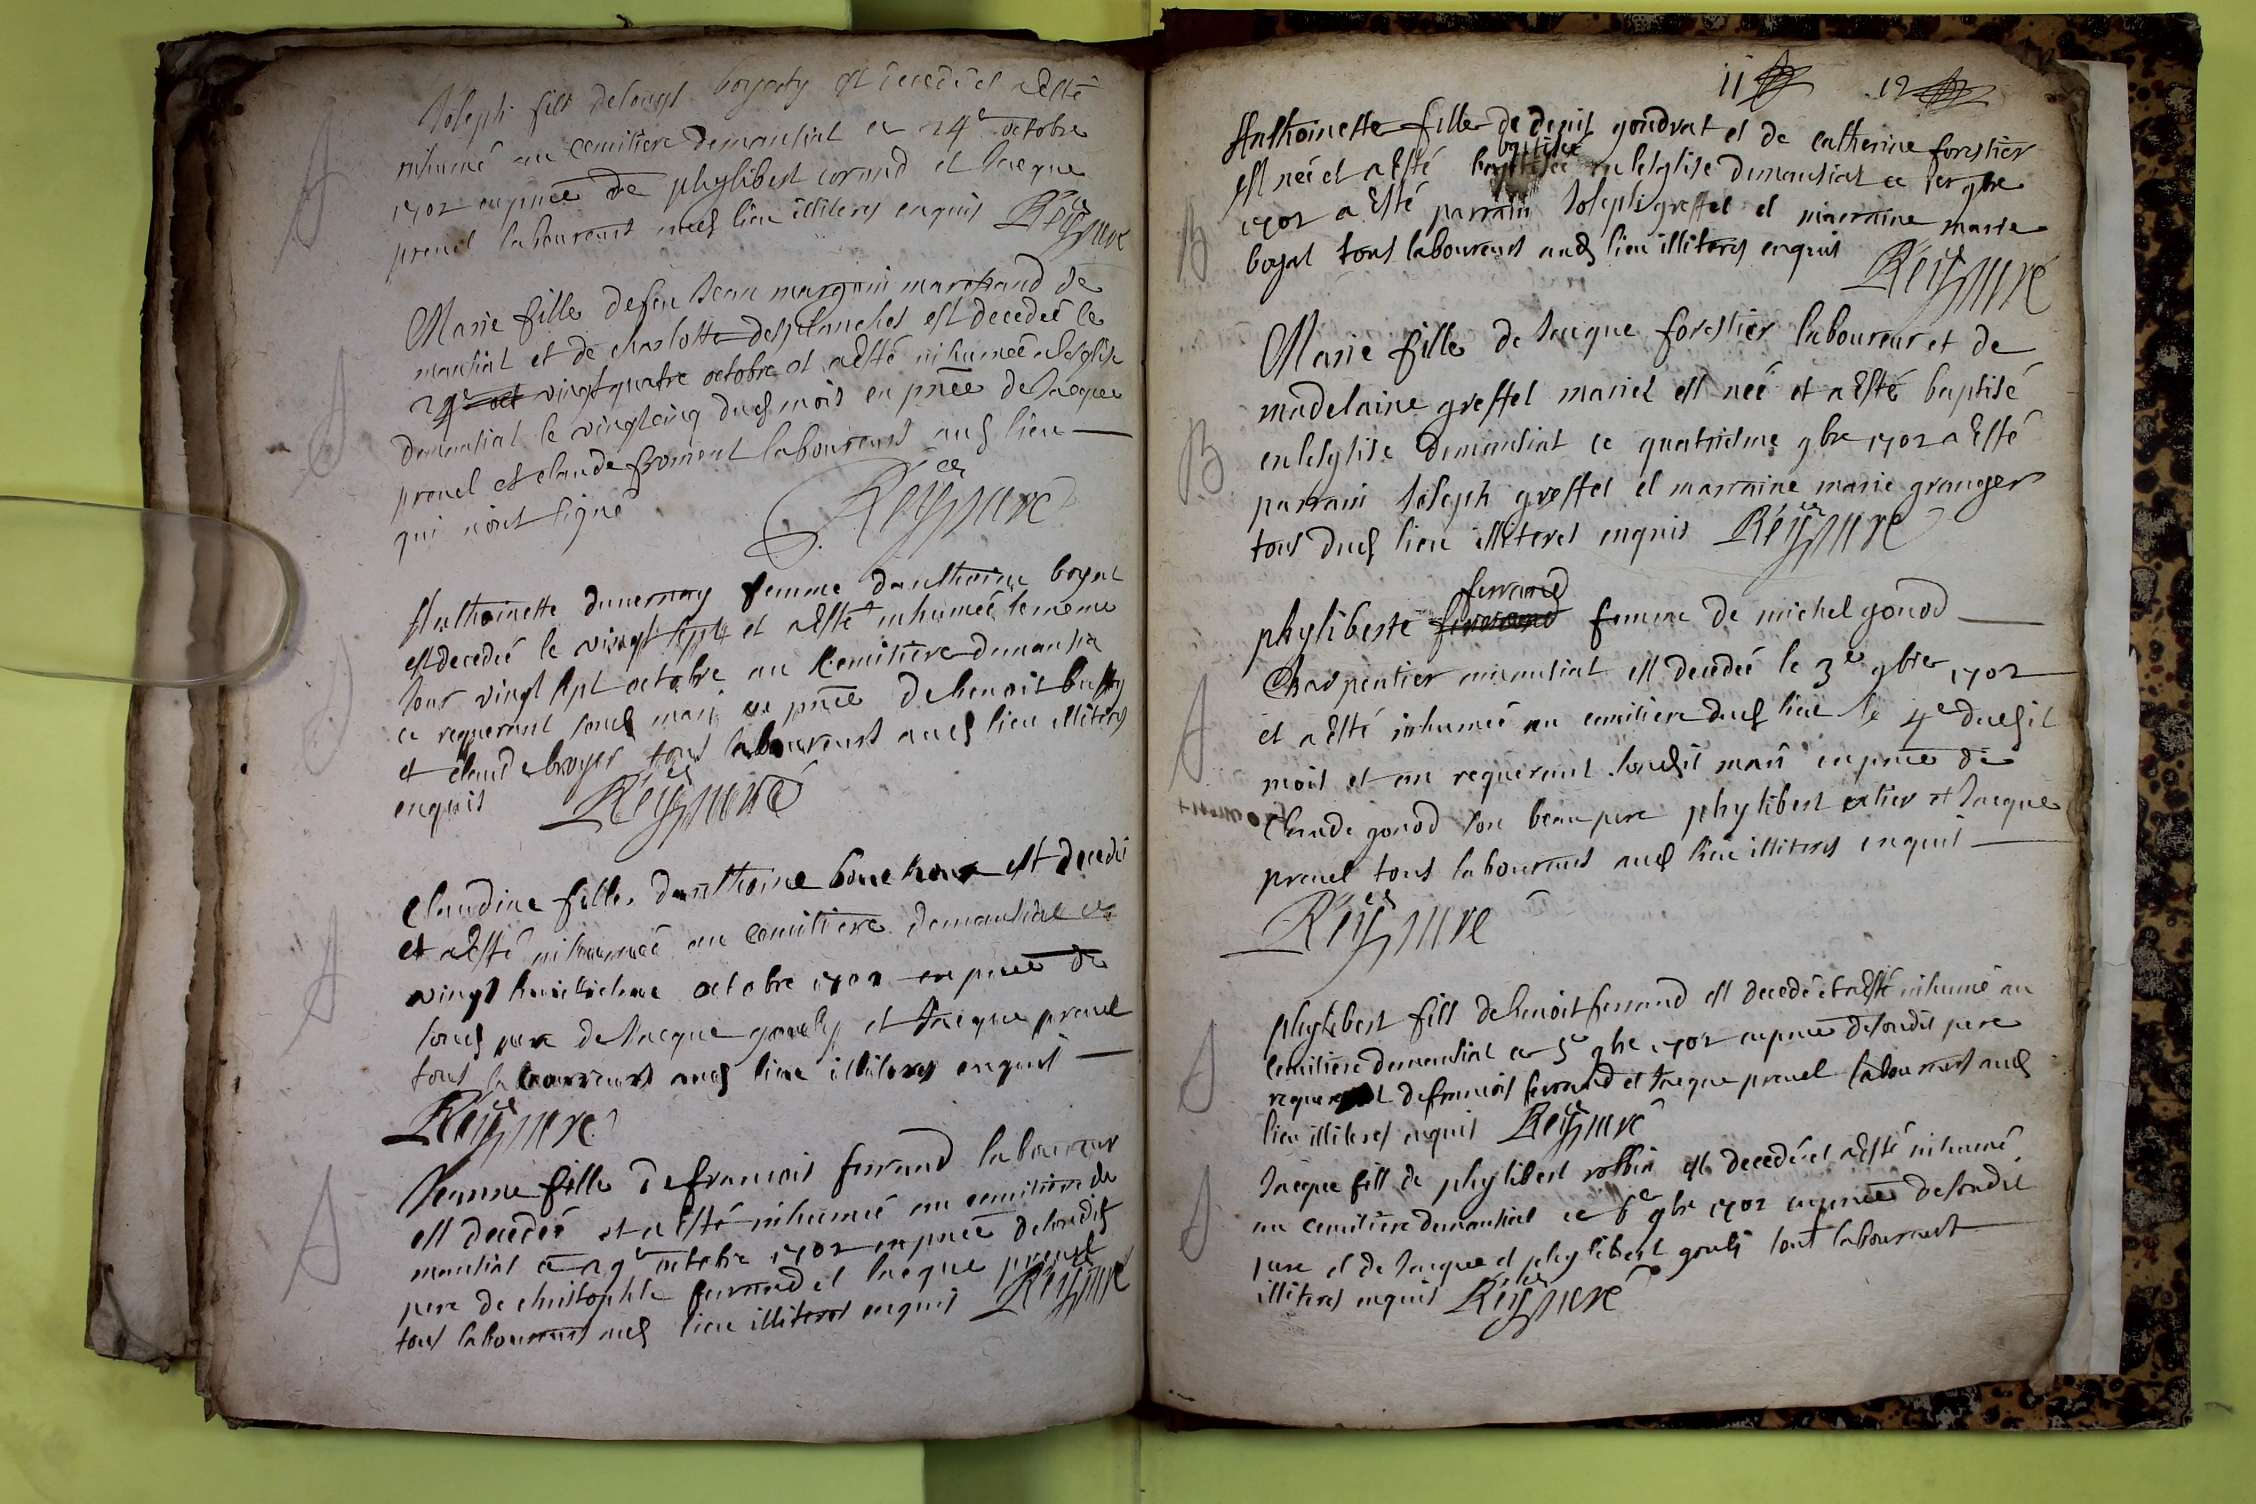 Joseph fils de louys est decedé et a esté
inhumé au cemitiere demantiat ce 24e octobre
1702 en pnce de phylibert corand et Jacque
preuel laboureurs aud lieu illiteres enquis Rey curé
Marie fille de feu Jean margain marchand de
mantiat et de charlotte desplanches est decedeé le
24e oct vingt quatre octobre et a esté inhumeé a leglise
demantiat le vingtcinq dud mois en pnce de Jacque
preuel et claude froment laboureurs aud lieu
qui n'ont signé
Rey curé
Anthoinette duuernay femme danthoine boyat
est decedeé le vingt sept et a esté inhumeé le meme
Jour vingt sept octobre au Cemitiere demantia
ce requerant soud mary en pnce de benoist buffy
et claude broyer tous laboureurs aud lieu illiteres
enquis Rey curé
Claudine fille danthoine bouchoux est decedeé
et a esté inhumeé au cemitiere demantiat ce
vingt huictiesme octobre 1702 en pnce de
soud pere de Jacque gouly et Jacque preuel
tous laboureurs aud lieu illiteres enquis
Rey curé
Jeanne fille de francois ferrand laboureur
est decedeé et a esté inhumeé au cemitiere de
mantiat ce 29e octobre 1702 en pnce de soudit
pere de christophle ferrand et Jacque preuel
tous laboureurs aud lieu illiteres enquis Rey curé
11 12
Anthoinette fille de denis gondrat et de catherine forestier
baptisée
est neé et a esté baptisée en lesglise demantiat ce 1er 9bre
1702 a esté parrain Joseph greffet et marraine marie
boyat tous laboureurs aud lieu illiteres enquis
Rey curé
Marie fille de Jacque forestier laboureur et de
madelaine greffet mariez est neé et a esté baptisé
en lesglise demantiat ce quatriesme 9bre 1702 a esté
parrain Joseph greffet et marraine marie granger
tous dud lieu illiteres enquis Rey curé
ferrand
phyliberte femme de michel gonod
Charpentier a mantiat est decedeé le 3e 9bre 1702
et a esté inhumeé au cemitiere dud lieu le 4e dudit
mois et an requerant soudit mari en pnce de
Claude gonod son beau pere phylibert et Jacque
preuel tous laboureurs aud lieu illiteres enquis
Rey curé
phylibert fils de benoist ferrand est decedé et a esté inhumé au
Cemitiere demantiat ce 5e 9bre 1702 en pnce de soudit pere
requerant de francois ferrand et Jacque preuel laboureurs aud
lieu illiteres enquis Rey curé
Jacque fils de phylibert robin est decedé et a esté inhumé
au cemitiere demantiat ce 6e 9bre 1702 en pnce de soudit
pere et de Jacque et phylibert gouli tous laboureurs
illiteres enquis Rey curé